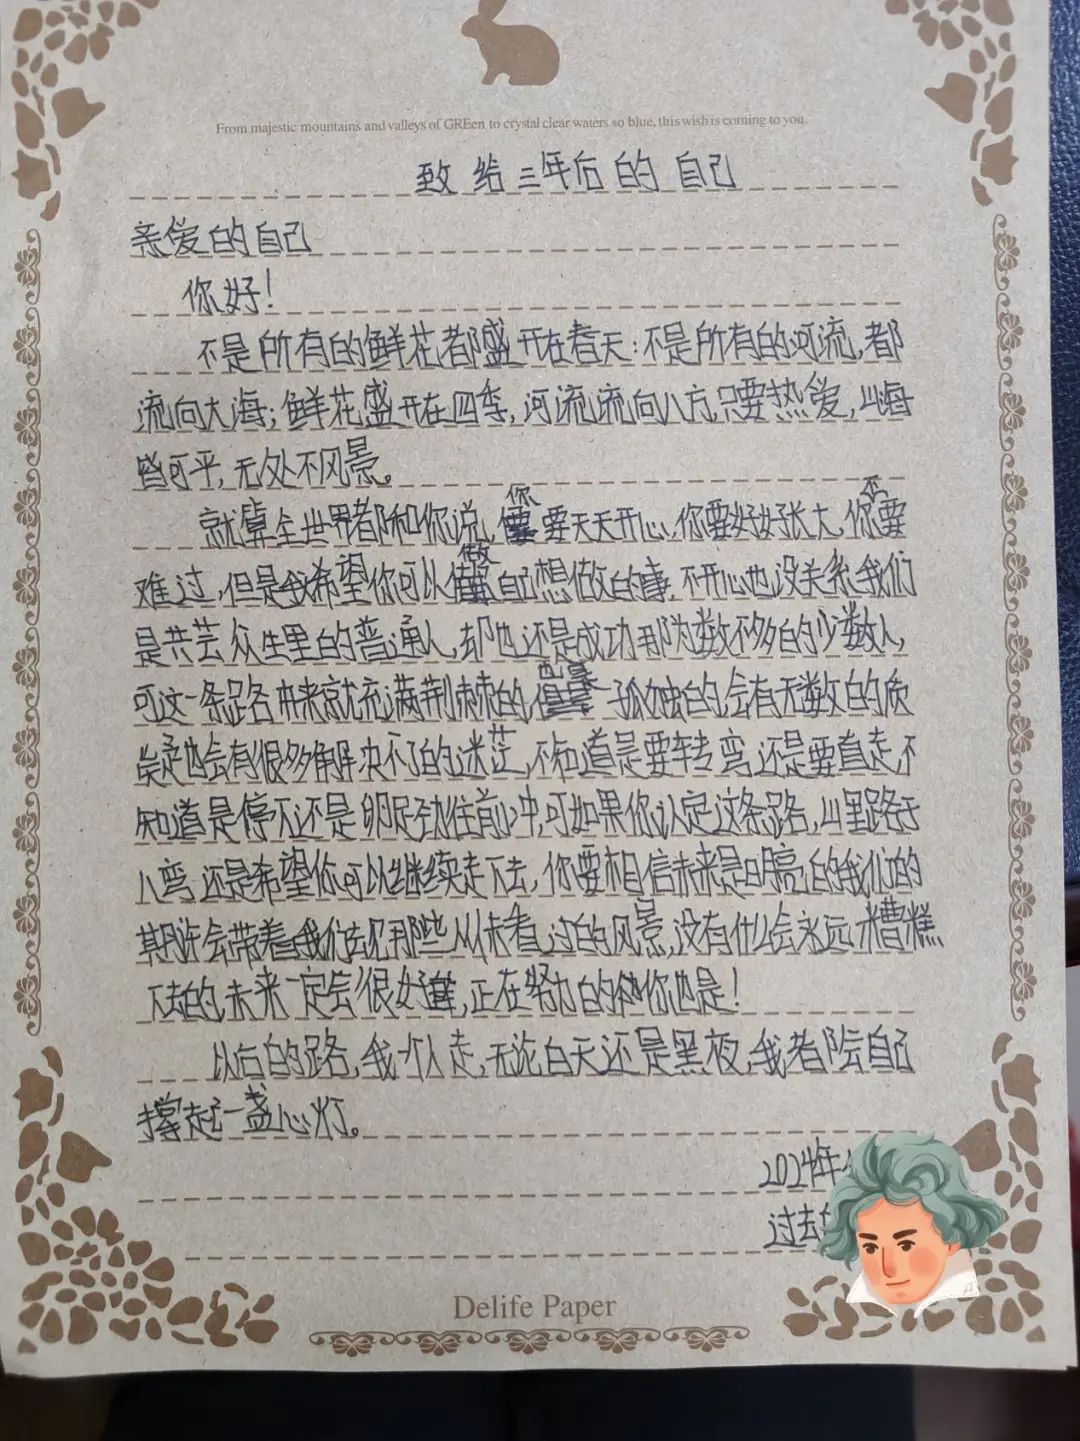 From majestic mountains and valleys of GREen to crystal clear waters so blue, this wish is coming to you.
致给三年后的自己
亲爱的自己
你好!
不是所有的鲜花,都盛开在春天;不是所有的河流,都
流向大海;鲜花盛开在四季,河流流向八方,只要热爱,山海
皆可平,无处不风景。
就算全世界都和你说,你要天天开心,你要好好长大,你不要
难过,但是我希望你可以做自己想做的事,不开心也没关系,我们
是共芸众生里的普通人,却也还是成功那为数不多的少数人,
可这一条路本来就充满荆棘的,也是孤独的,会有无数的质
疑也会有很多解决不了的迷茫,不知道是要转弯,还是要直走,不
知道是停下还是卯足劲往前冲,可如果你认定这条路,山里路十
八弯,还是希望你可以继续走下去,你要相信未来是明亮的我们的
期许会带着我们去见那些从未看过的风景,没有什么会永远糟糕
下去的,未来一定会很好哦,正在努力的你也是!
以后的路,我一个人走,无论白天还是黑夜,我都会自己
撑起一盏心灯。
2024年
过去
Delife Paper